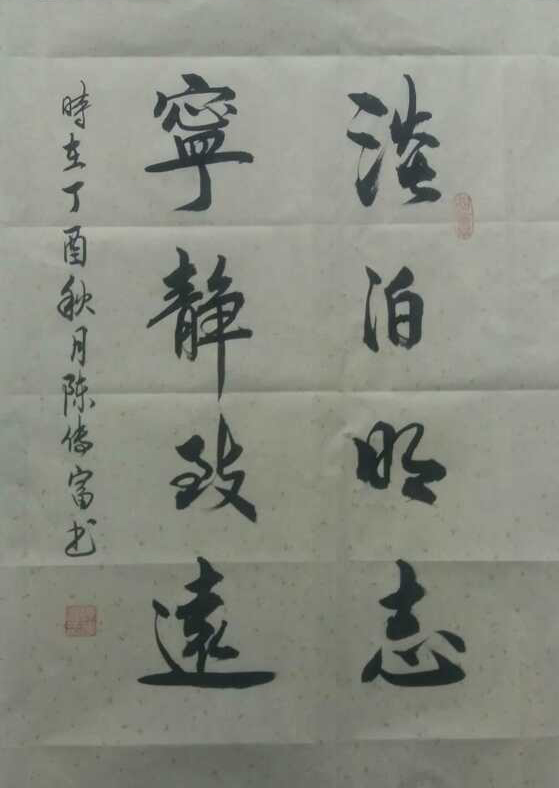 淡泊明志
寧靜致遠
時在丁酉秋月陈传富书